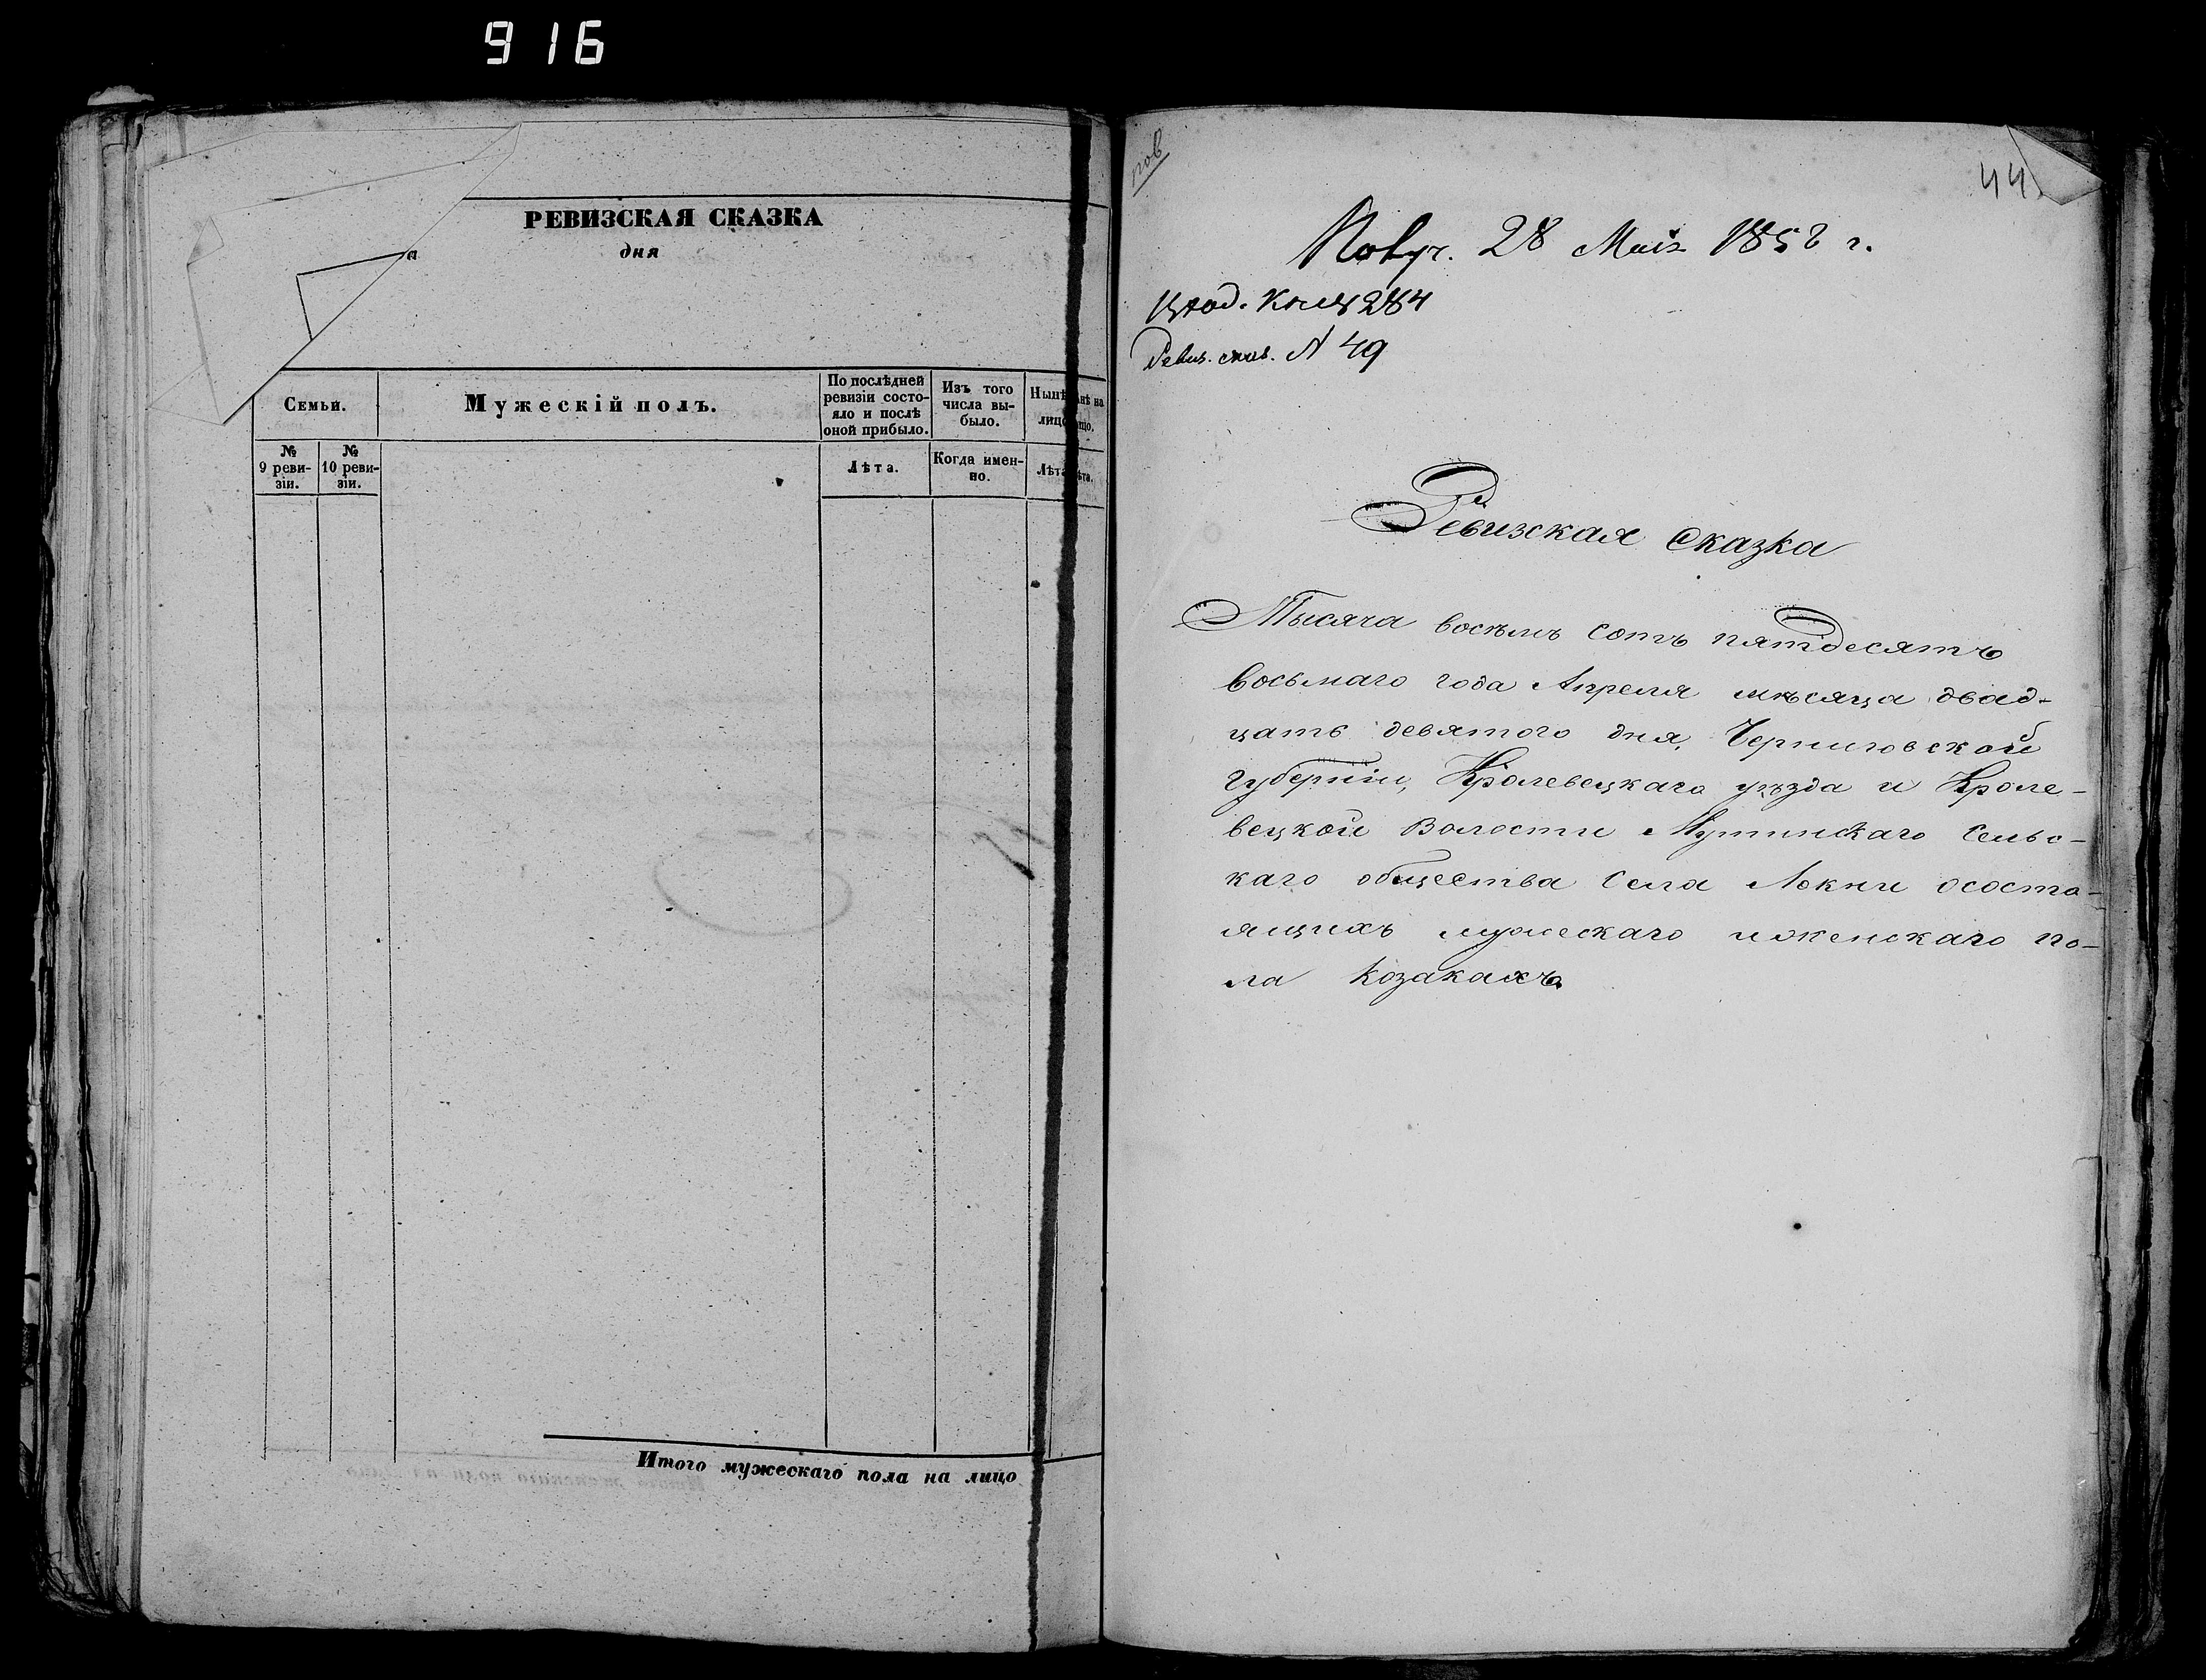 916
РЕВИЗСКАЯ СКАЗКА
дня
а
Семьи.
Мужескій полъ.
По послѣдней ревизіи состо-
яло и послѣ
оной прибыло.
Изъ того
числа вы-
было.
№
9 реви-
зіи.
№
10 реви-
зіи.
Лѣта.
Когда имен-
но.
Итого мужескаго пола на лицо
пов
44.
Получ. 28 Мая 1858 г.
Вход. Книг 284
Ревиз. сказ. № 49
Ревизская сказка
Тысяча восѣмъ сотъ пятдесятъ
восьмаго года Апреля мѣсяца двад-
цать девятого дня, Черниговской
губерніи, Кролевецкаго уѣзда и Кроле-
вецкой Волости Мутинскаго Сельс-
каго общества Села Локни осостo-
ящихъ мужескаго иженскаго по-
ла Козакахъ.